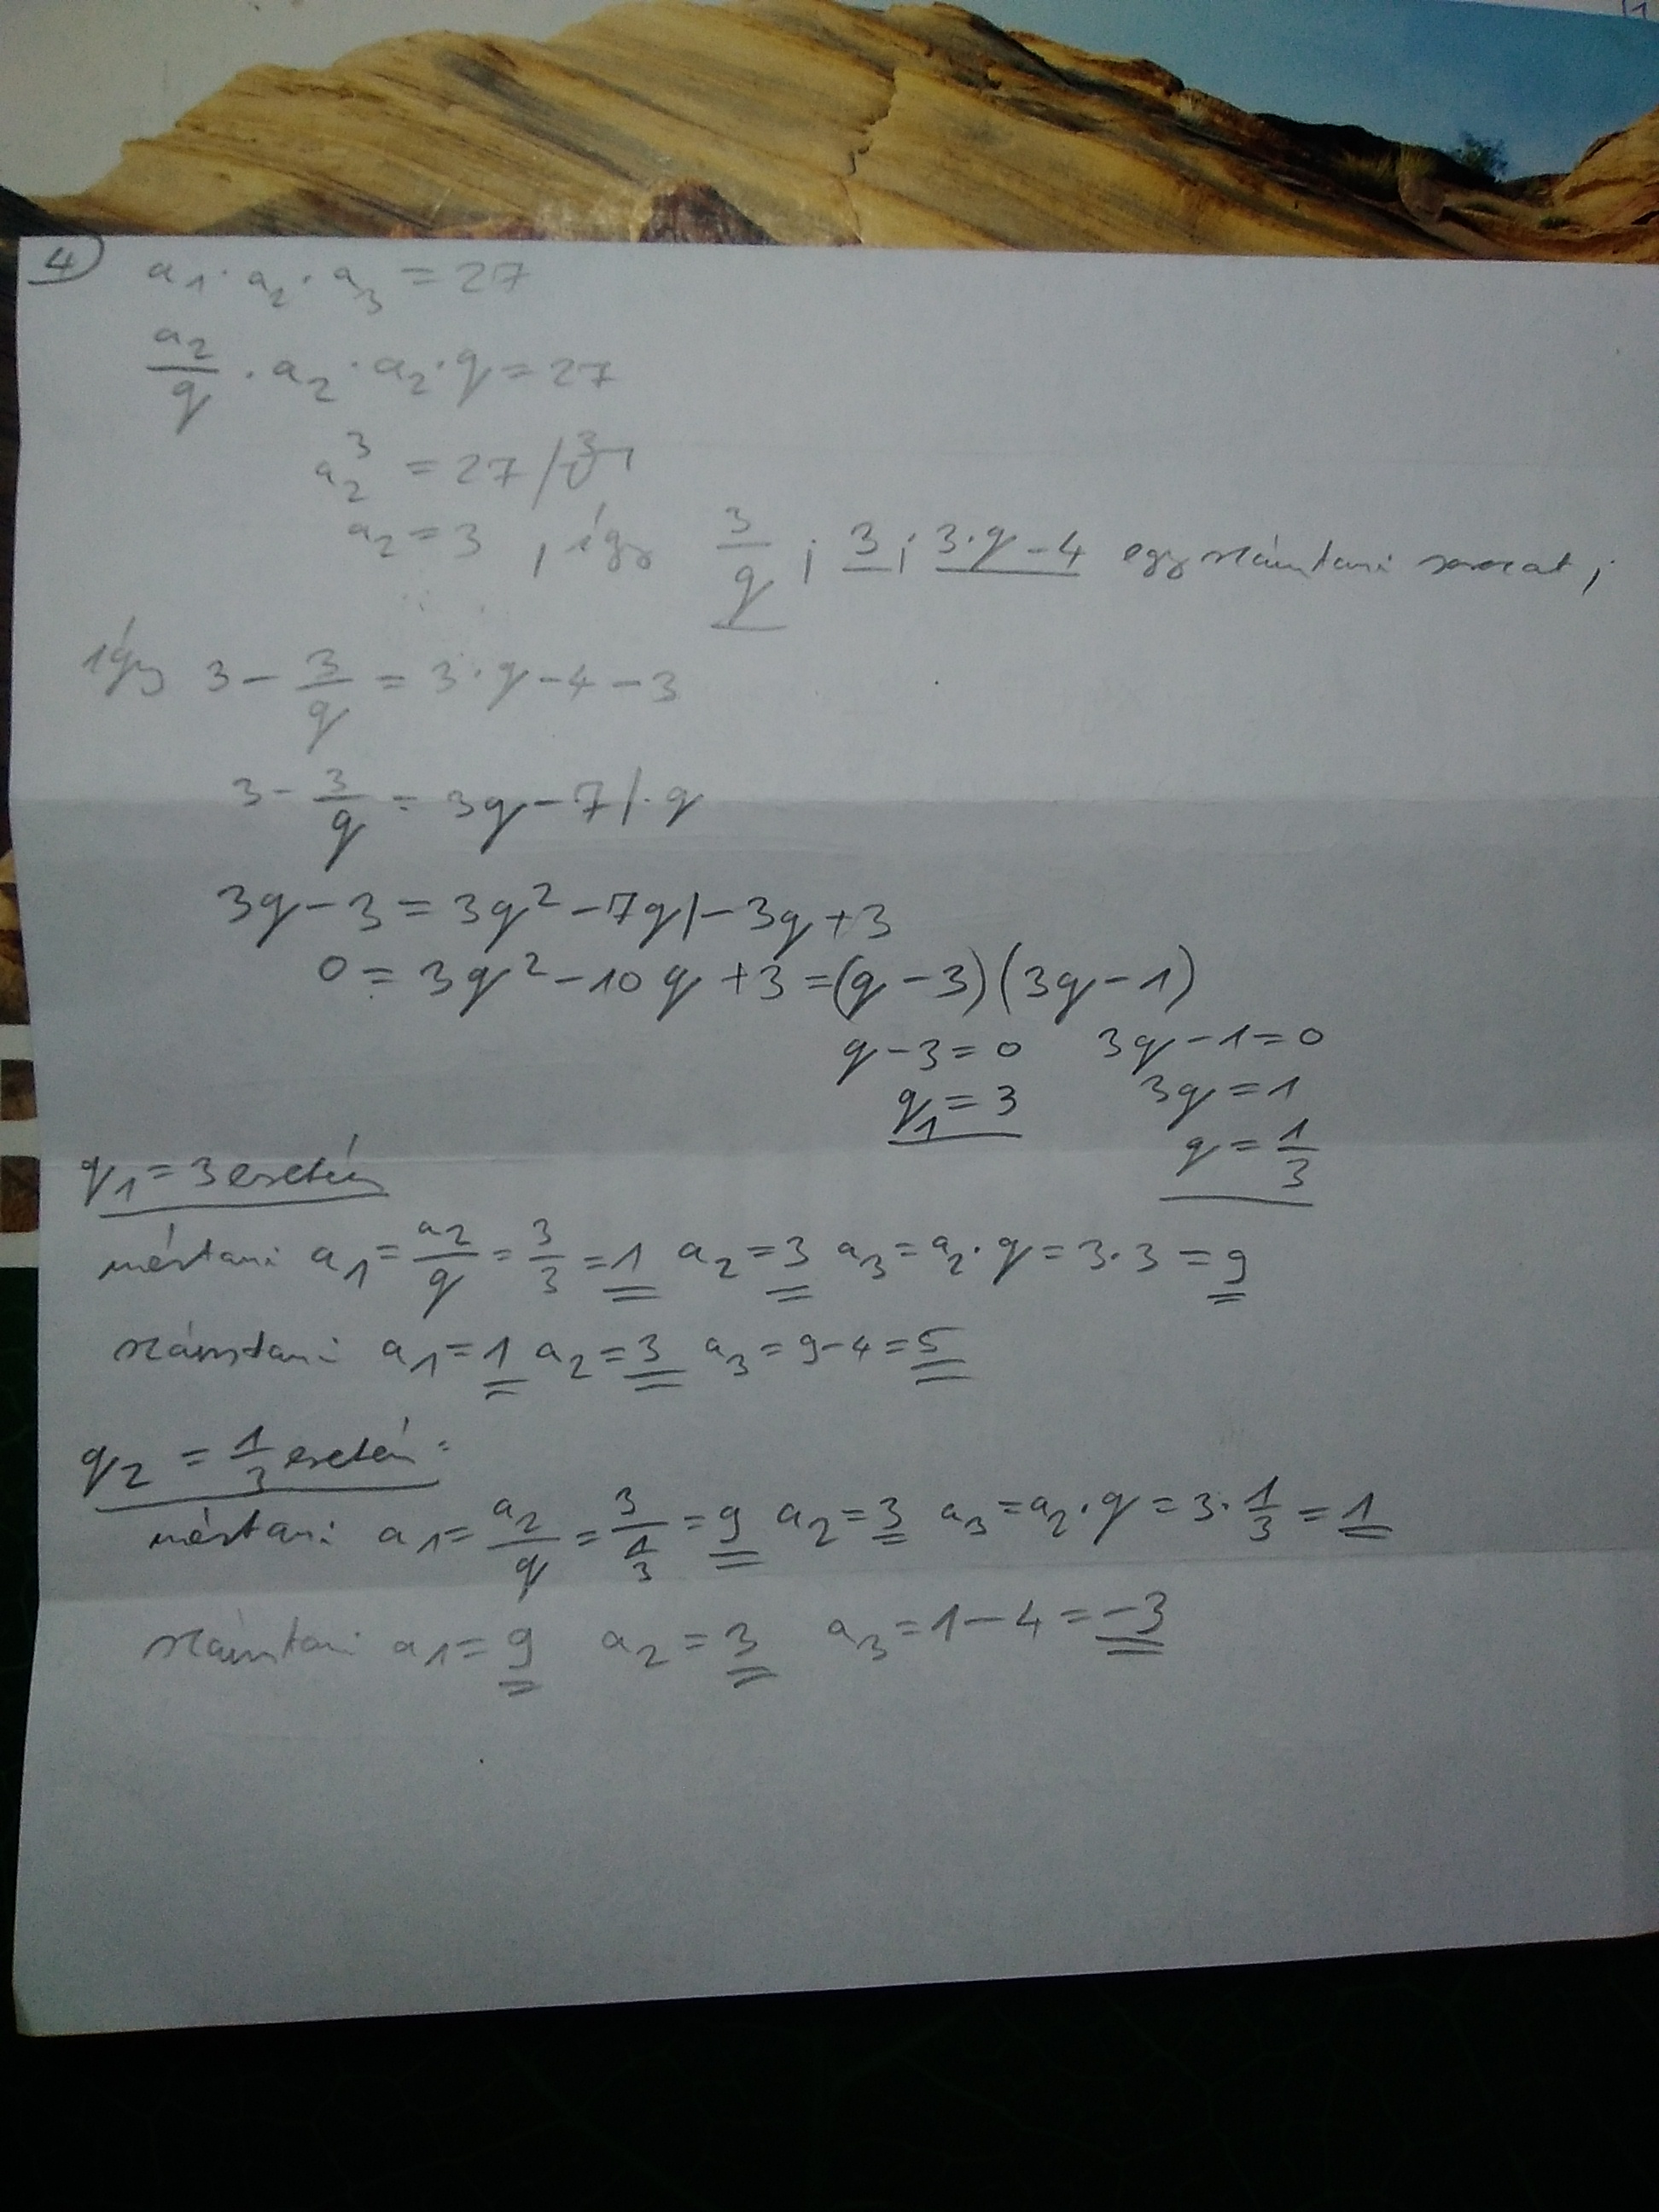 4) a₁·a₂·a₃ = 27
a₂/q · a₂ · a₂ · q = 27
a₂³ = 27 /∛
a₂ = 3 , így 3/q ; 3 ; 3·q-4 egy számtani sorozat ;
így 3 - 3/q = 3·q - 4 - 3
3 - 3/q = 3q - 7 /·q
3q - 3 = 3q² - 7q /-3q+3
0 = 3q² - 10q + 3 = (q-3)(3q-1)
q - 3 = 0 3q - 1 = 0
q₁ = 3 3q = 1
q = 1/3
q₁ = 3 esetén
mértani a₁ = a₂/q = 3/3 = 1 a₂ = 3 a₃ = a₂·q = 3·3 = 9
számtani a₁ = 1 a₂ = 3 a₃ = 9-4 = 5
q₂ = 1/3 esetén:
mértani a₁ = a₂/q = 3/(1/3) = 9 a₂ = 3 a₃ = a₂·q = 3·1/3 = 1
számtani a₁ = 9 a₂ = 3 a₃ = 1-4 = -3